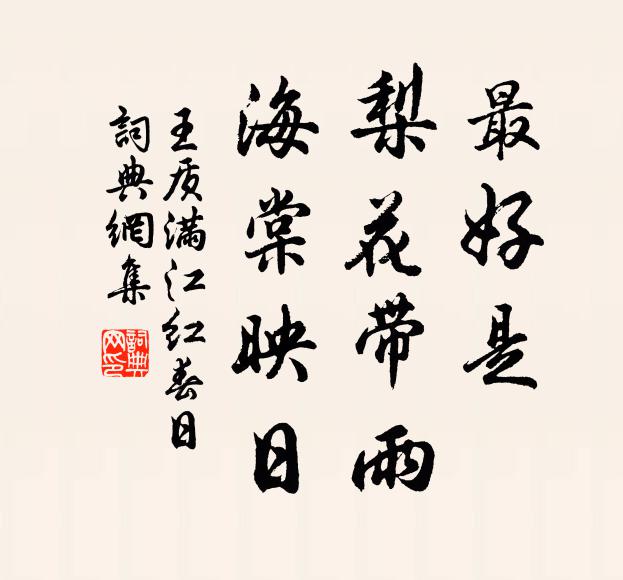 最好是
梨花带雨
海棠映日
王质满江红春日
詞典網集
詞典网印